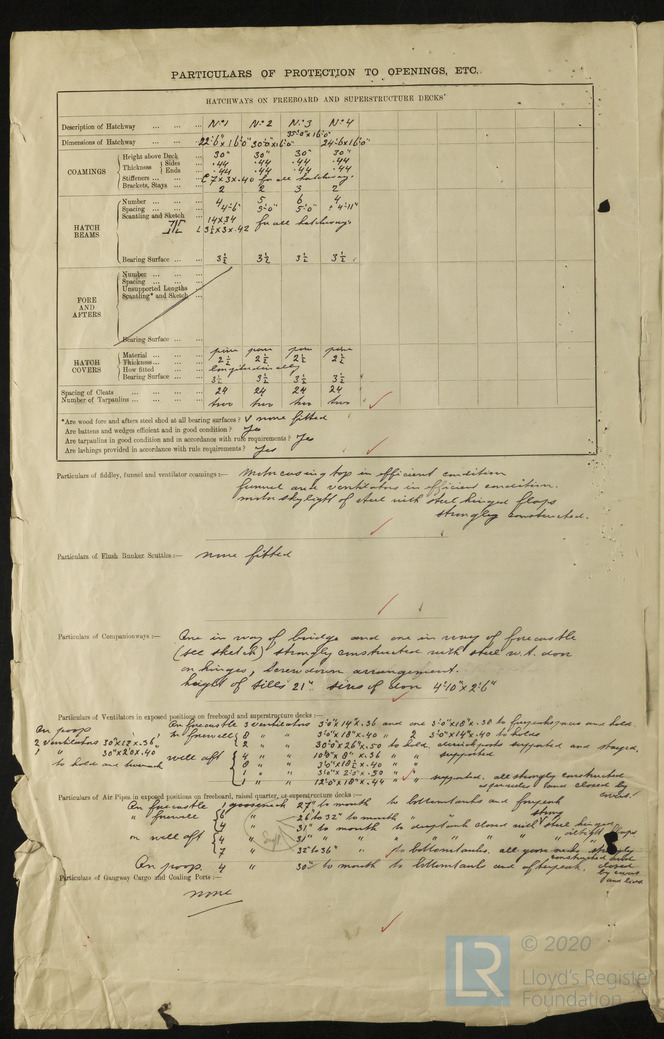 PARTICULARS OF PROTECTION TO OPENINGS, ETC.
HATCHWAYS ON FREEBOARD AND SUPERSTRUCTURE DECKS
Description of Hatchway ... ... ... No 1 No 2 No 3 No 4
Dimensions of Hatchway ... ... 22'6"x16'0" 30'0"x16'0" 35'0"x16'0" 24'6"x16'0"
COAMINGS
Height above Deck ... 30" 30" 30" 30"
Thickness Sides ... .44 .44 .44 .44
Ends ... .44 .44 .44 .44
Stiffeners ... ... 7x3x.40 for all hatchways
Brackets, Stays ... ... 2 2 3 2
HATCH BEAMS
Number ... ... ... 4 5 6 4
Spacing ... ... ... 4'-6" 5'-0" 5'-0" 4'-11"
Scantling and Sketch 14x34 for all hatchways
3½x3x.42
Bearing Surface ... ... 3½ 3½ 3½ 3½
FORE AND AFTERS
Number ... ... ...
Spacing ... ... ...
Unsupported Lengths
Scantling* and Sketch ...
Bearing Surface ... ...
HATCH COVERS
Material ... ... ... pine
Thickness ... ... ... 2½ 2½ 2½ 2½
How fitted ... ... longitudinally
Bearing Surface ... ... 3½ 3½ 3½ 3½
Spacing of Cleats ... ... ... 24 24 24 24
Number of Tarpaulins ... ... ... two two two two
*Are wood fore and afters steel shod at all bearing surfaces? none fitted
Are battens and wedges efficient and in good condition? Yes
Are tarpaulins in good condition and in accordance with rule requirements? Yes
Are lashings provided in accordance with rule requirements? Yes
Particulars of fiddley, funnel and ventilator coamings :— Motor casing top in efficient condition
funnel and ventilators in efficient condition.
motor skylight of steel with steel hinged flaps
strongly constructed.
Particulars of Flush Bunker Scuttles :— none fitted
Particulars of Companionways :— One in way of bridge and one in way of forecastle
(see sketch) strongly constructed with steel w.t. door
on hinges, screw down arrangement.
height of sills 21" sizes of door 4'10"x2'6"
Particulars of Ventilators in exposed positions on freeboard and superstructure decks :—
On forecastle 3 ventilators 3'0"x14"x.36 and one 3'0"x18"x.38 to forepeak and hold
On poop 2 ventilators 30"x12"x.36
1 " 30"x20x.40
to hold and
In forewell 8 " 3'0"x18"x.40 " 2 3'0"x14"x.40 to holds
2 " 30'0"x26"x.50 to hold, derrickposts supported and stayed
well aft 4 " 10'6"x8"x.36 " " supported
2 " 3'0"x18½x.40 " "
1 " 3'0"x2'0"x.50 " " supported. all strongly constructed
1 " 12'0"x18"x.44 " " and closed by
covers!
Particulars of Air Pipes in exposed positions on freeboard, raised quarter, or superstructure decks :—
On forecastle 1 gooseneck 27" to mouth to bottomtanks and forepeak
" forewell 6 " 26 to 32" to mouth " "
4 " 31" to mouth to deeptank closed with strong steel hinged
oiltight flaps
in well aft 4 " 31" " " " " " "
7 " 32 to 36" " to bottomtanks. all goosenecks strongly
constructed and closed
by covers
On poop 4 " 30" to mouth to bottomtanks and afterpeak.
Particulars of Gangway Cargo and Coaling Ports :—
none
LR
© 2020
Lloyd's Register
Foundation